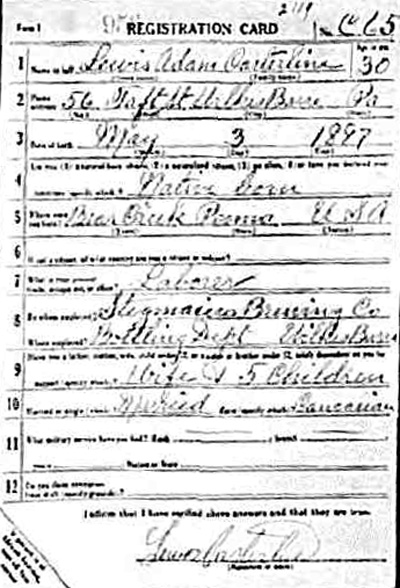 Form 1 REGISTRATION CARD No. C 65
Age in yrs.
1 Name in full Lewis Adam Casterline 30
(Given name) (Family name)
2 Home address 56 Taft St Wilkes Barre Pa
(No.) (Street) (City) (State)
3 Date of birth May 3 1887
(Month) (Day) (Year)
Are you (1) a natural-born citizen, (2) a naturalized citizen, (3) an alien, (4) or have you declared your
4 intention (specify which)? Native born
5 Where were you born? Bear Creek Penna U S A
(Town) (State) (Nation)
6 If not a citizen, of what country are you a citizen or subject?
7 What is your present trade, occupation, or office? Laborer
8 By whom employed? Stegmaier Brewing Co
Where employed? Bottling Dept Wilkes Barre
Have you a father, mother, wife, child under 12, or a sister or brother under 12, solely dependent on you for
9 support (specify which)? Wife & 5 Children
10 Married or single (which)? Married Race (specify which)? Caucasian
11 What military service have you had? Rank branch
years Nation or State
12 Do you claim exemption from draft (specify grounds)?
I affirm that I have verified above answers and that they are true.
Lewis Casterline
(Signature or mark)